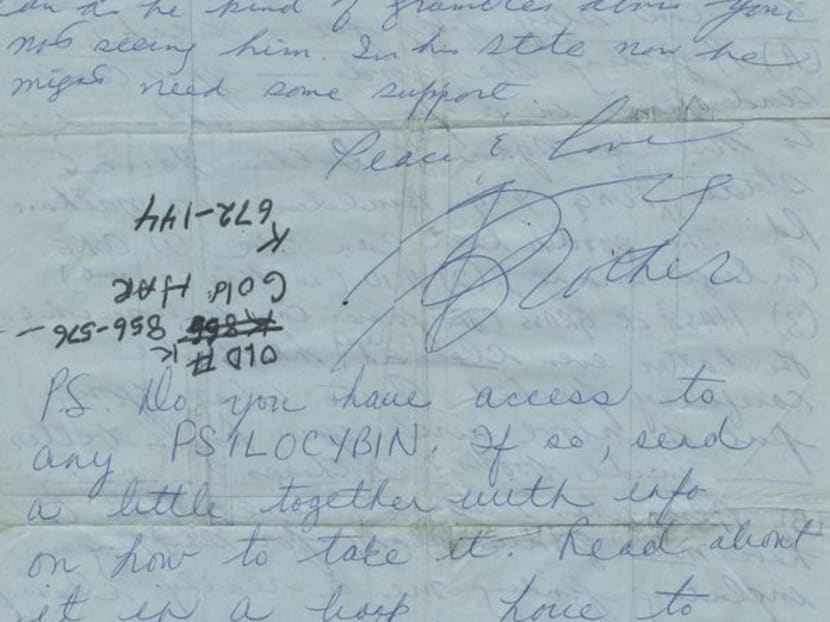 kind of your
not seeing him. In his state now he
might need some support
Peace & Love
Brother
OLD # K
856-576-
GOLD. HAR
K
672-144
PS. Do you have access to
any PSILOCYBIN. If so, send
a little together with info
on how to take it. Read about
it in a book. Love to